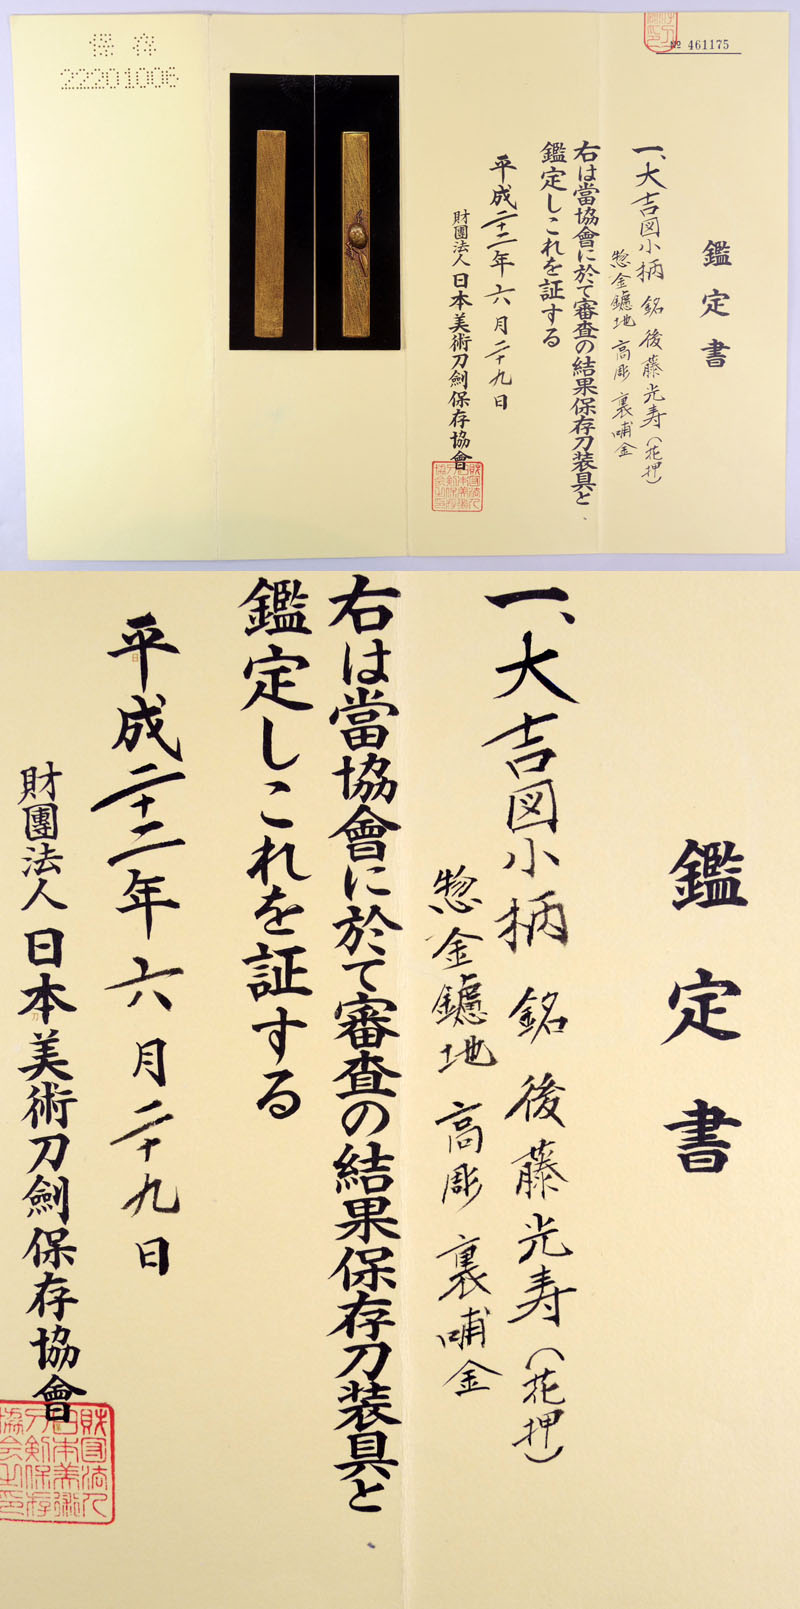 保存
22201006
№ 461175
鑑定書
一、大吉図小柄 銘 後藤光寿（花押）
惣金鑢地 高彫 裏哺金
右は當協會に於て審査の結果保存刀装具と
鑑定しこれを証する
平成二十二年六月二十九日
財團法人日本美術刀劍保存協會
鑑定書
一、大吉図小柄 銘 後藤光寿（花押）
惣金鑢地 高彫 裏哺金
右は當協會に於て審査の結果保存刀装具と
鑑定しこれを証する
平成二十二年六月二十九日
財團法人日本美術刀劍保存協會
財団法人
日本美術
刀剣保存
協会之印